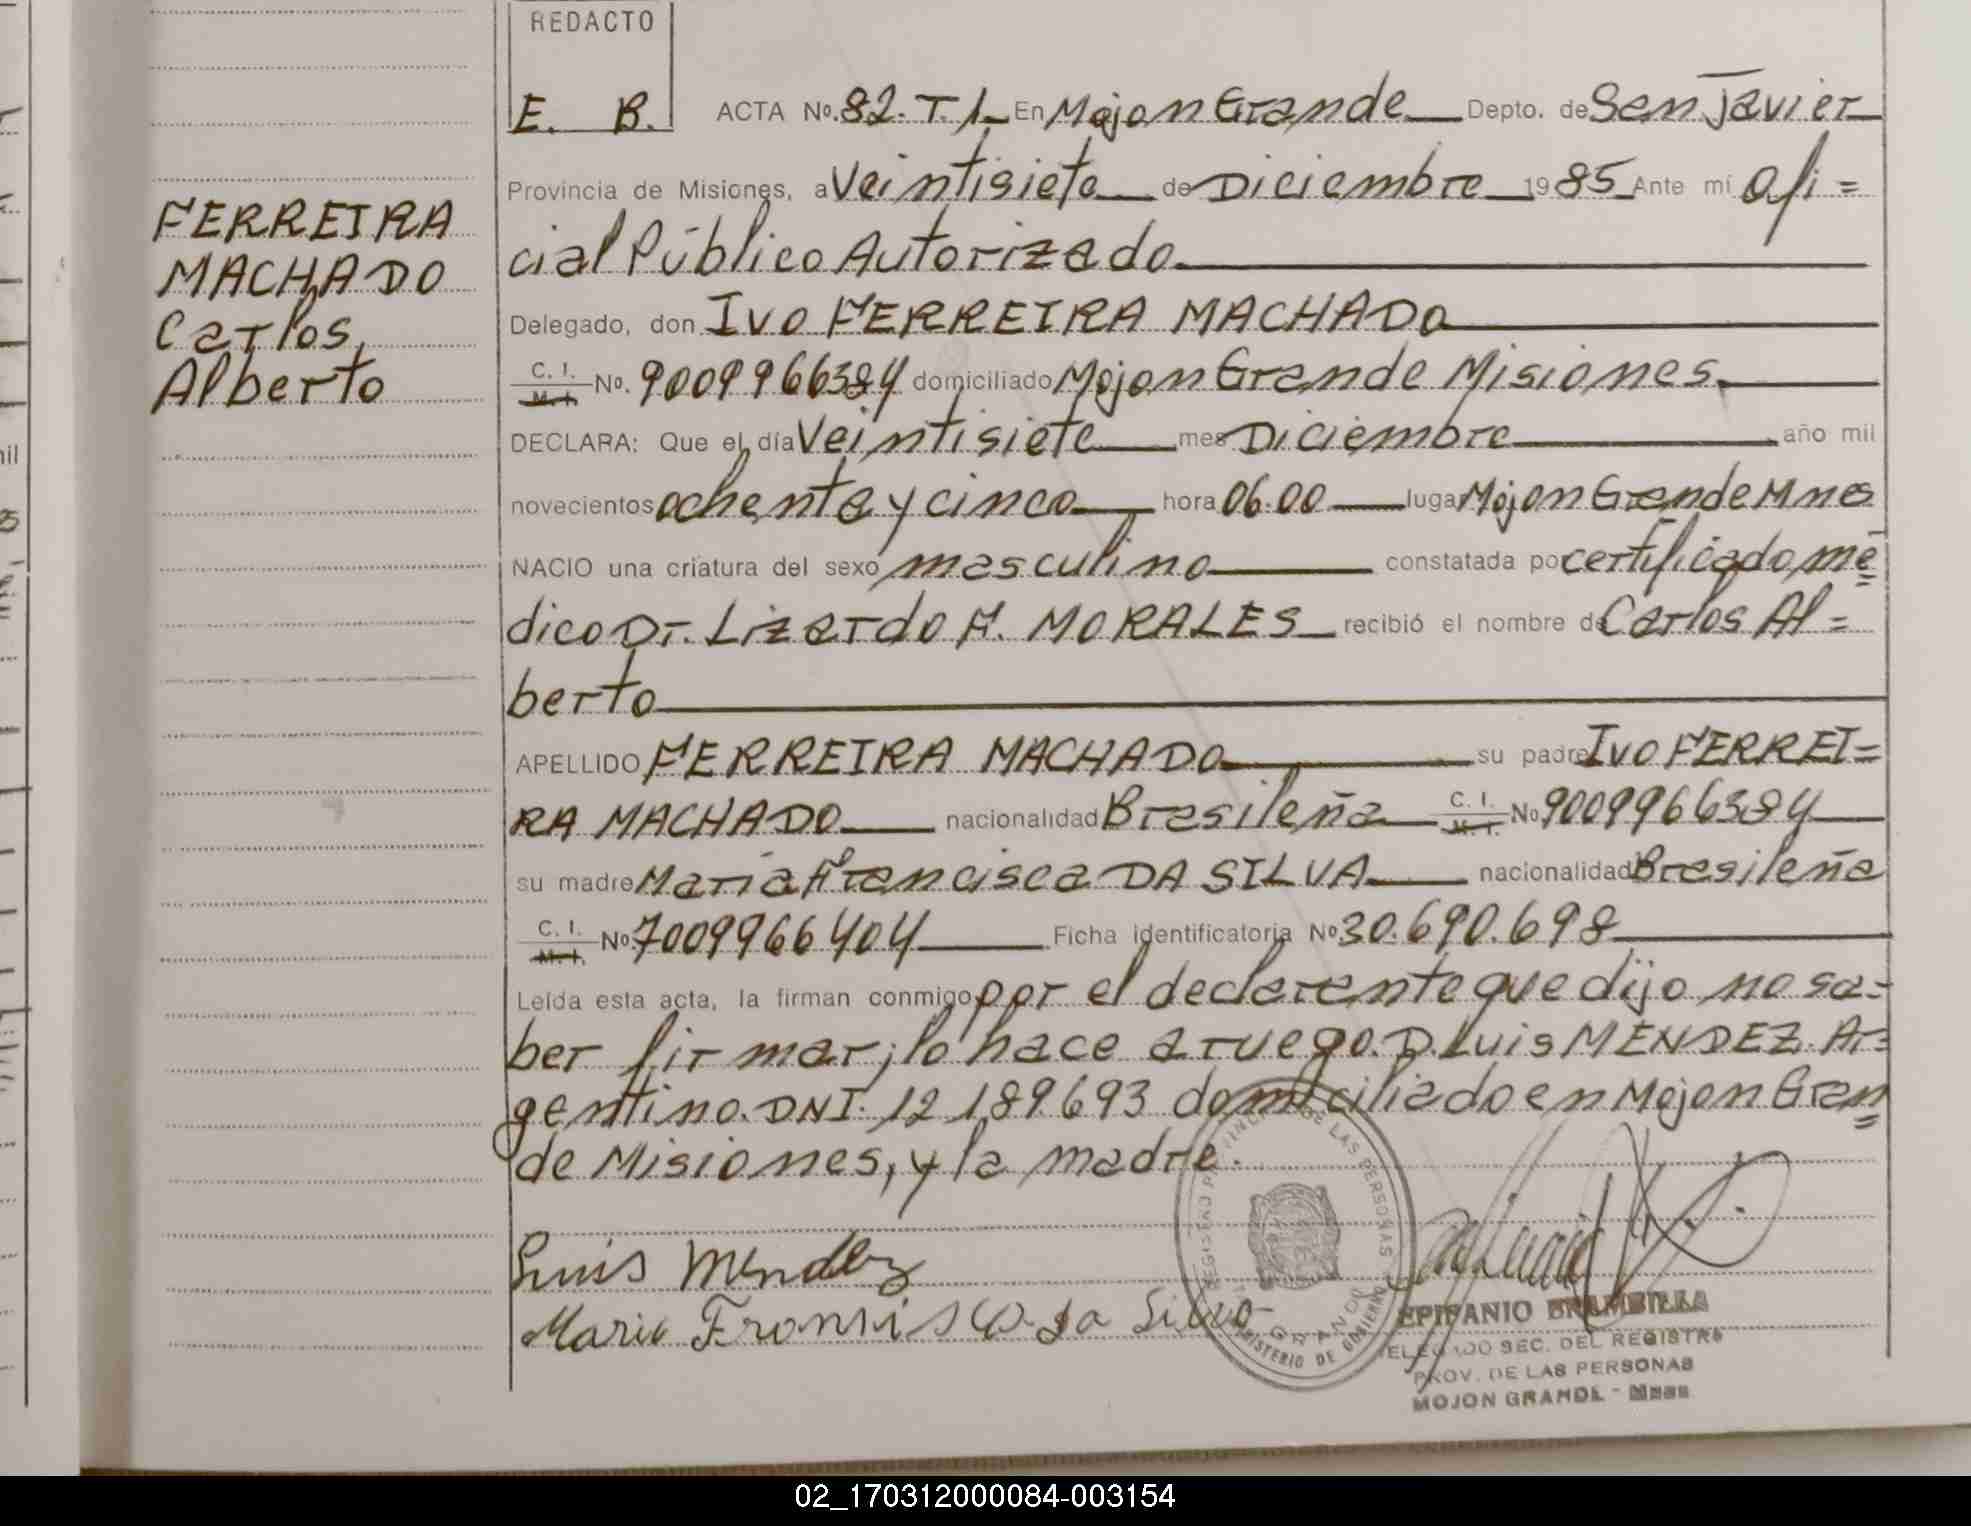 REDACTO
E. B.
ACTA No. 82. T. 1. En Mojon Grande Depto. de San Javier
Provincia de Misiones, a Veintisiete de Diciembre 1985 Ante mí Ofi=
cial Público Autorizado
Delegado, don Ivo FERREIRA MACHADO
C. I. M. I. No. 9009966384 domiciliado Mojon Grande Misiones.
DECLARA: Que el día Veintisiete mes Diciembre año mil
novecientos ochenta y cinco hora 06.00 lugar Mojon Grande Mnes
NACIO una criatura del sexo masculino constatada por certificado mé=
dico Dr. Lizardo F. MORALES recibió el nombre de Carlos Al=
berto
APELLIDO FERREIRA MACHADO su padre Ivo FERREI=
RA MACHADO nacionalidad Brasileña C. I. M. I. No 9009966384
su madre Maria Francisca DA SILVA nacionalidad Brasileña
C. I. M. I. No. 7009966404 Ficha identificatoria No. 30.690.698
Leída esta acta, la firman conmigo por el declarante que dijo no sa=
ber firmar; lo hace a ruego. D. Luis MENDEZ. Ar=
gentino. DNI. 12 189.693 domiciliado en Mojon Gran=
de Misiones, y la madre.
Luis Mendez
Maria Fransisca da Silva
FERREIRA
MACHADO
Carlos
Alberto
REGISTRO PROVINCIAL DE LAS PERSONAS
MINISTERIO DE GOBIERNO
EPIFANIO BRAMBILLA
DELEGADO SEC. DEL REGISTRO
PROV. DE LAS PERSONAS
MOJON GRANDE - Mnes
02_170312000084-003154